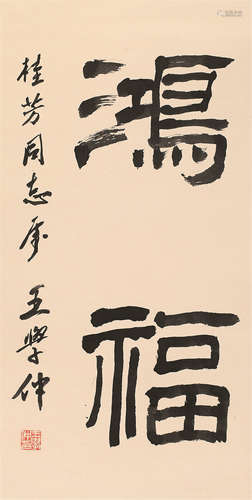 鸿福
桂芳同志属
王学仲